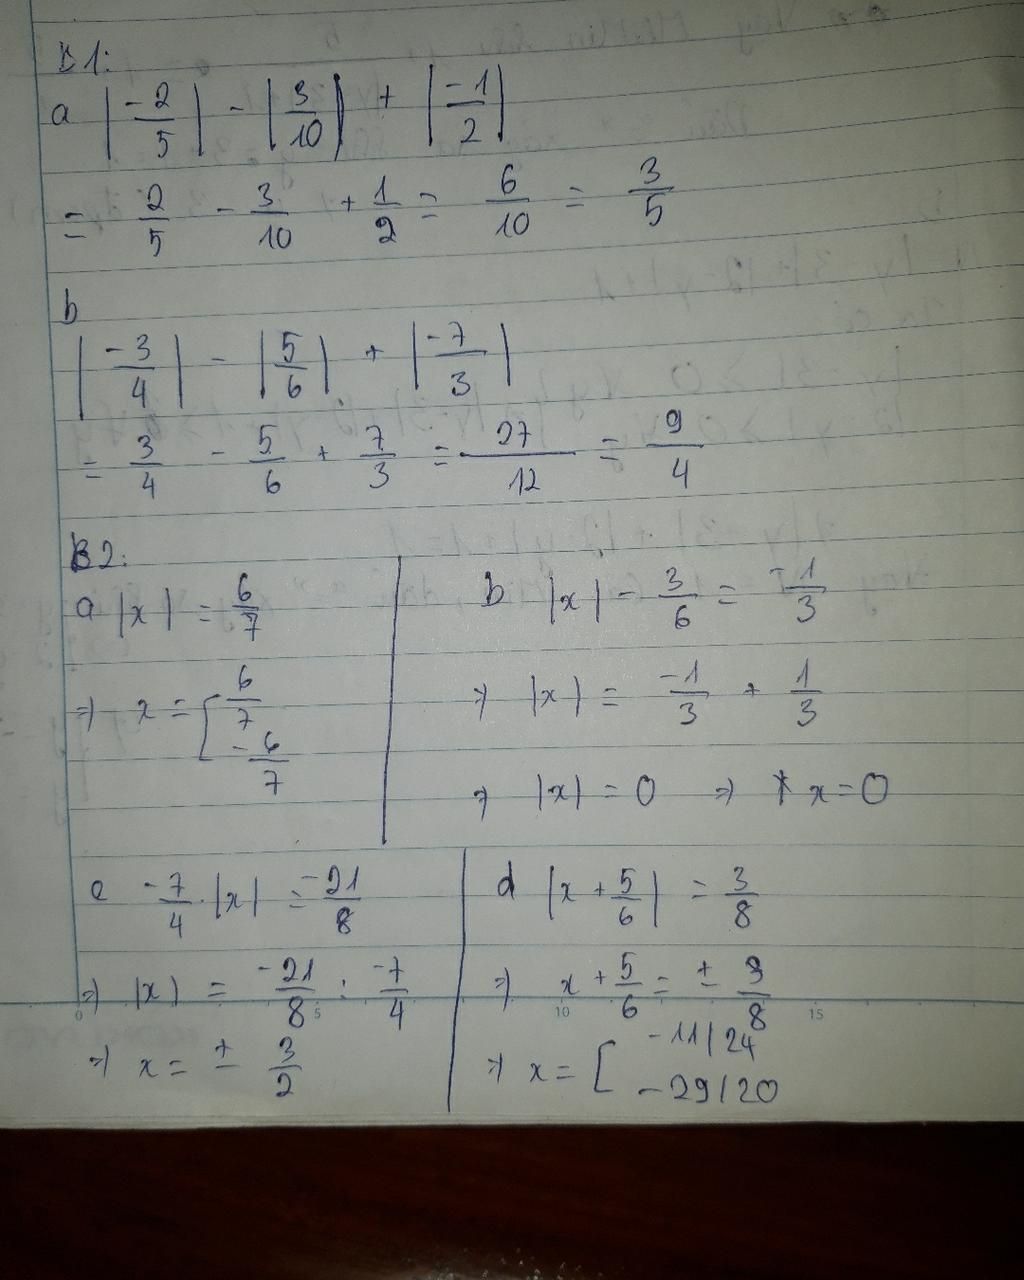 B1:
a |-2/5| - |3/10| + |-1/2|
= 2/5 - 3/10 + 1/2 = 6/10 = 3/5
b
|-3/4| - |5/6| + |-7/3|
= 3/4 - 5/6 + 7/3 = 27/12 = 9/4
B2:
a |x| = 6/7
=> x = [ 6/7
-6/7
b |x| - 3/6 = -1/3
=> |x| = -1/3 + 1/3
=> |x| = 0 => x = 0
c -7/4 . |x| = -21/8
=> |x| = -21/8 : -7/4
=> x = ± 3/2
d |x + 5/6| = 3/8
=> x + 5/6 = ± 3/8
=> x = [ -11/24
-29/20
0 5 10 15